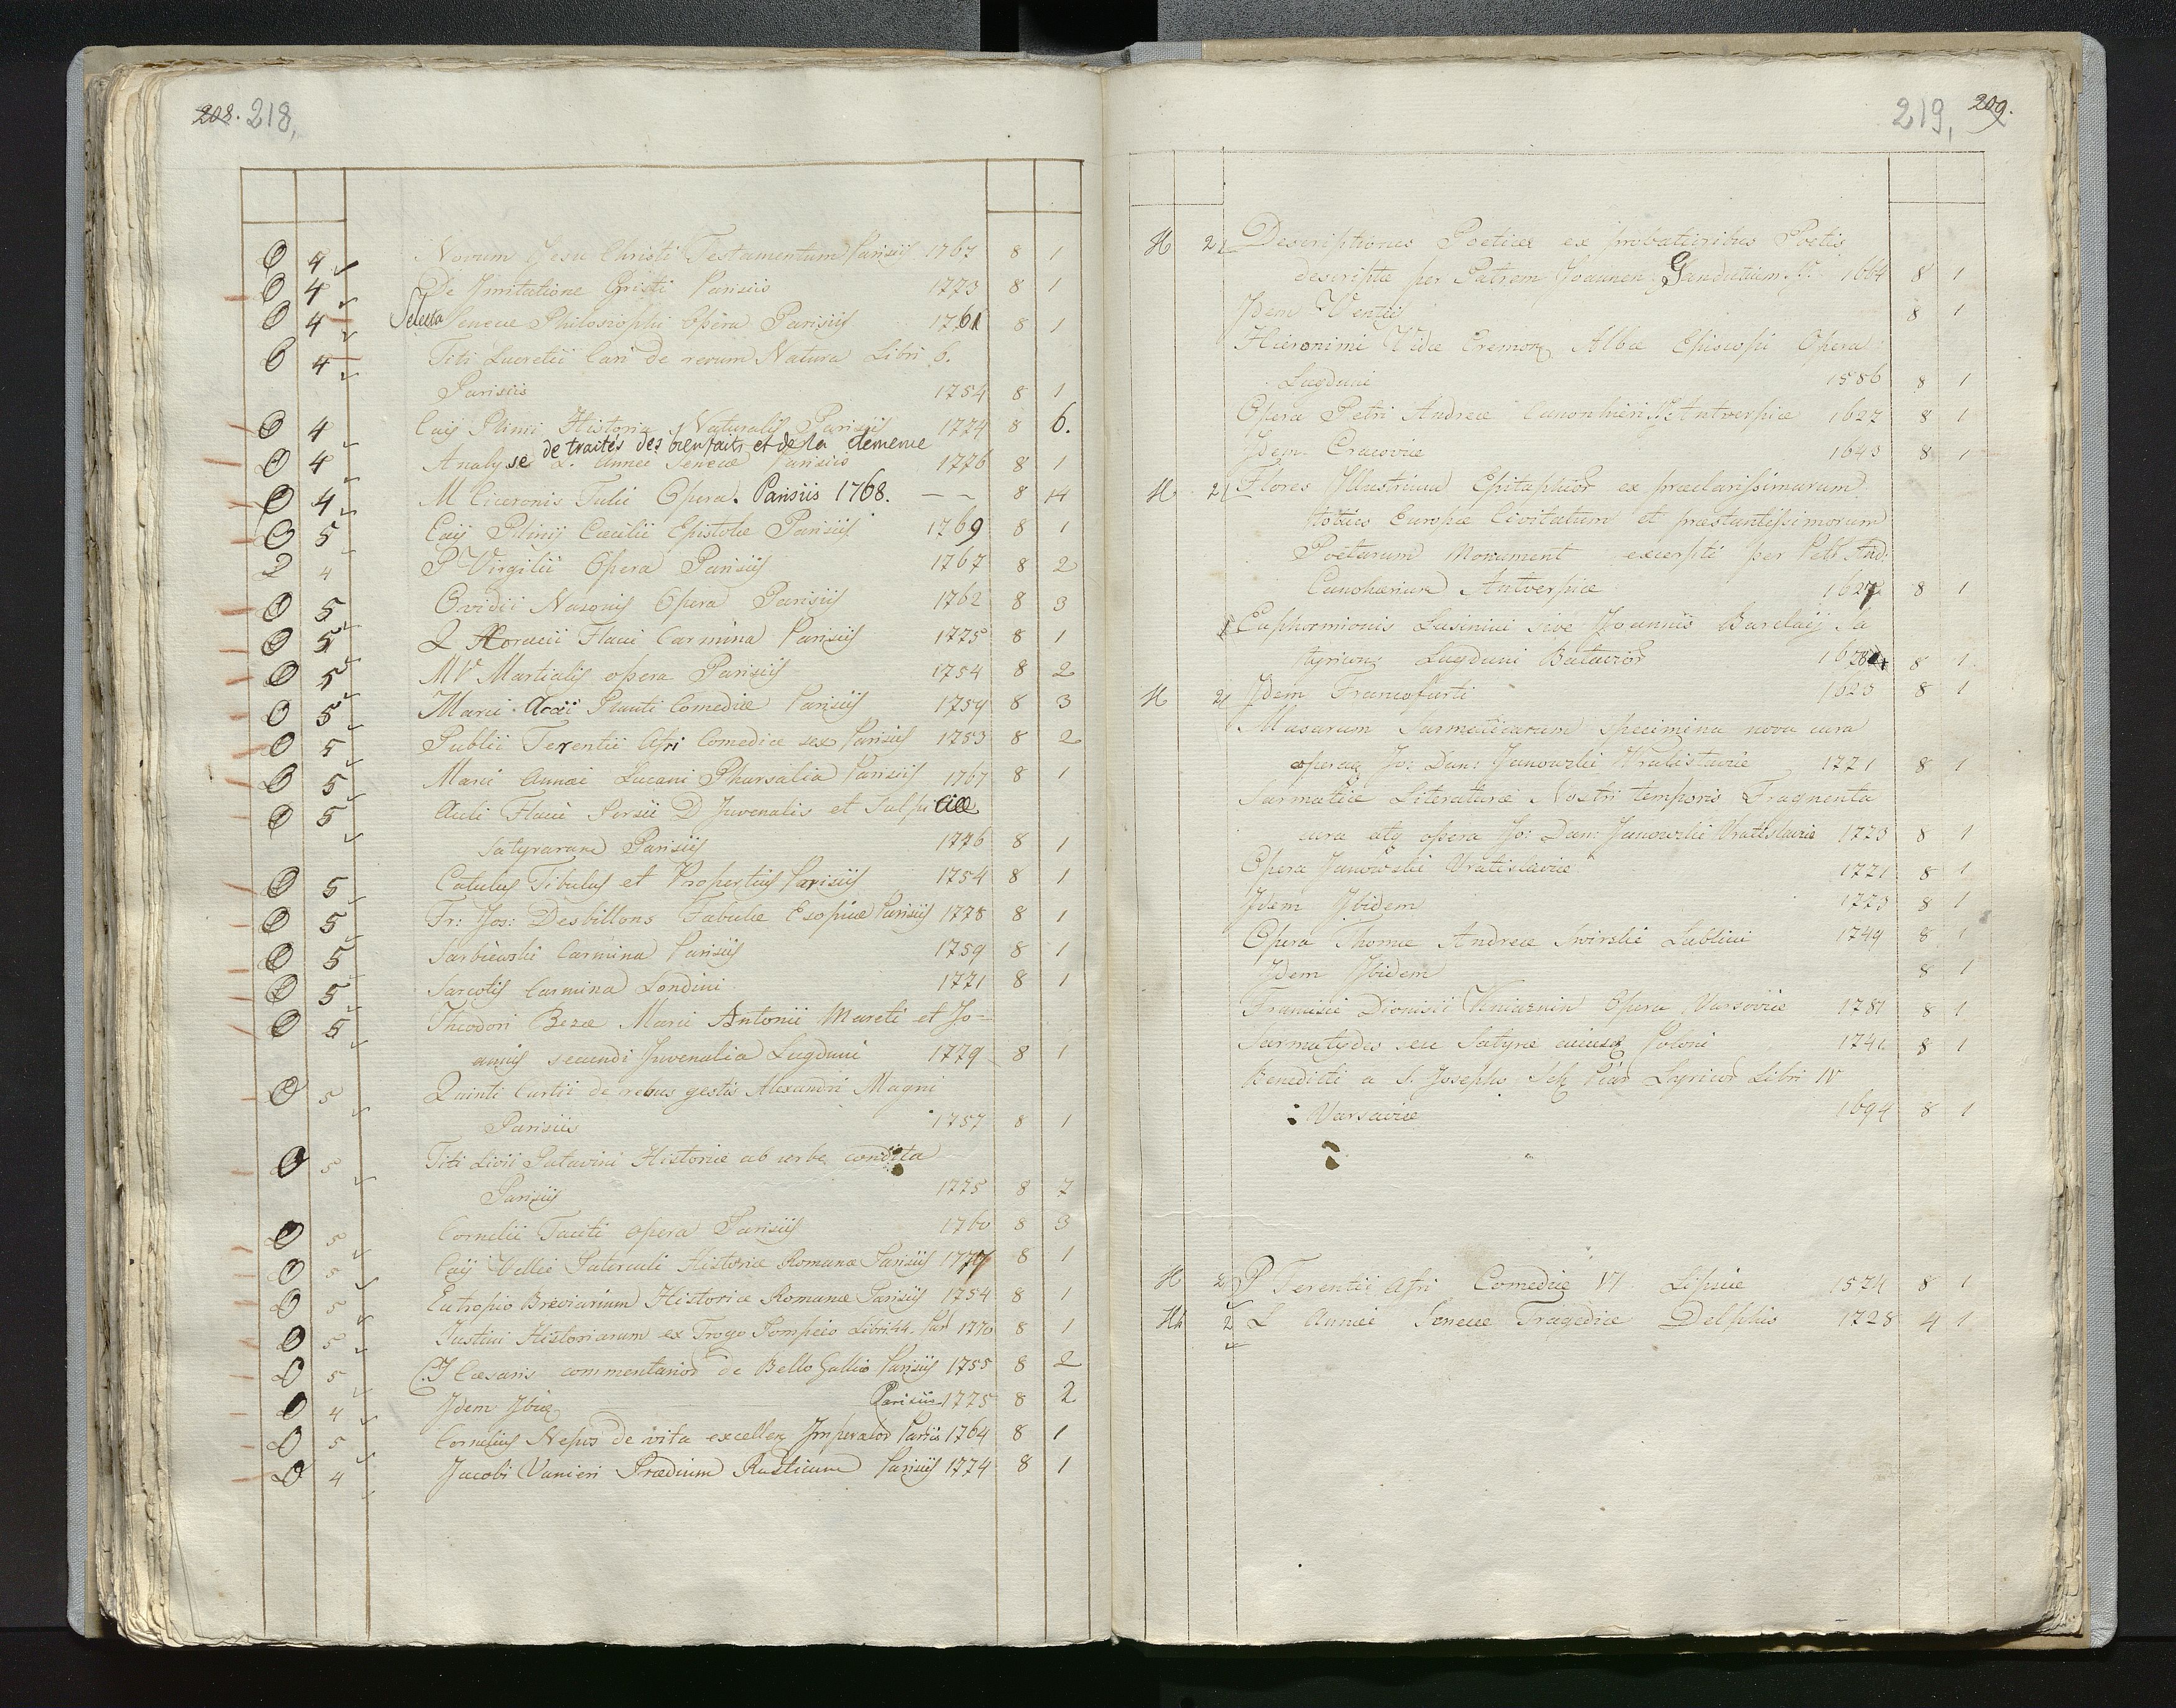 208. 218,
O 4 Novum Jesu Christi Testamentum Parisiis 1767 8 1
O 4 De Imitatione Cristi Parisiis 1773 8 1
O 4 Selecta Senecæ Philosophi Opera Parisiis 1761 8 1
O 4 Titi Lucretii Cari de rerum Natura Libri 6.
Parisiis 1754 8 1
O 4 Caij Plinii Historia Naturalis Parisiis 1774 8 6.
de traités des bienfaits et de la clemence
O 4 Analyse L. Annee Senecæ Parisiis 1776 8 1
O 4 M Ciceronis Tulii Opera. Parisiis 1768. — — 8 14
O 5 Caij Plinij Cæcilii Epistolæ Parisiis 1769 8 1
2 4 P Virgilii Opera Parisiis 1767 8 2
O 5 Ovidii Nasonis Opera Parisiis 1762 8 3
O 5 Q Horacii Flaci Carmina Parisiis 1775 8 1
O 5 M V Martialis opera Parisiis 1754 8 2
O 5 Marci Accii Plauti Comediæ Parisiis 1759 8 3
O 5 Publii Terentii Afri Comediæ sex Parisiis 1753 8 2
O 5 Marci Annæi Lucani Pharsalia Parisiis 1767 8 1
O 5 Auli Flacii Persii D Juvenalis et Sulpiciæ
Satyrarum Parisiis 1776 8 1
O 5 Catulus Tibulus et Propertius Parisiis 1754 8 1
O 5 Fr: Jos: Desbillons Fabulæ Esopiæ Parisiis 1778 8 1
O 5 Sarbiewski Carmina Parisiis 1759 8 1
O 5 Sarcotis Carmina Londini 1771 8 1
O 5 Theodori Bezæ Marci Antonii Mureti et Jo-
annis secundi Juvenalia Lugduni 1779 8 1
O 5 Quinti Curtii de rebus gestis Alexandri Magni
Parisiis 1757 8 1
O 5 Titi Livii Patavini Historiæ ab urbe condita
Parisiis 1775 8 7
O 5 Cornelii Taciti opera Parisiis 1760 8 3
O 5 Caij Vellei Paterculi Historiæ Romanæ Parisiis 1777 8 1
O 5 Eutropio Breviarium Historiæ Romanæ Parisiis 1754 8 1
O 5 Justini Historiarum ex Trogo Pompeio Libri 44. Par 1770 8 1
O 5 C. J Cæsaris commentarior de Bello Gallico Parisiis 1755 8 2
O 4 Idem Parisiis 1775 8 2
O 5 Cornelius Nepos de vita excellen Imperator Pariis 1764 8 1
O 4 Jacobi Vanieri Prædium Rusticum Parisiis 1774 8 1
219, 209.
H 2 Descriptiones Poeticæ ex probatioribus Poetis
descriptæ per Patrem Joannem Ganducium 1664 8 1
Idem Venetiis 8 1
Hieronimi Vidæ Cremon Albæ Episcopi Opera
Lugduni 1586 8 1
Opera Petri Andreæ Canonhieri Antverpiæ 1627 8 1
Idem Cracoviæ 1643 8 1
H 2 Flores Illustrium Epitaphior ex præclarissimarum
totius Europæ Civitatum et præstantissimorum
Poetarum Monument excerpti per Petr And:
Canoherium Antverpiæ 1627 8 1
Euphormionis Lusinini sive Joannis Barclaij Sa
tyricon Lugduni Batavior 8 1
H 2 Idem Francofurti 1623 8 1
Musarum Sarmaticarum specimina nova cura
operaq Jo: Dan: Janowzki Vratislaviæ 1771 8 1
Sarmatiæ Literaturæ Nostri temporis Fragmenta
cura atq opera Jo: Dan: Janowzki Vratislaviæ 1773 8 1
Opera Janowski Vratislaviæ 1771 8 1
Idem Ibidem 1773 8 1
Opera Thomæ Andreæ Swirski Lublini 1749 8 1
Idem Ibidem 8 1
Francisci Dionisii Kniaznin Opera Varsoviæ 1781 8 1
Sarmatydes seu Satyræ cuiusd Poloni 1741 8 1
Benedicti a S. Josepho Sch Piar Lyricor Libri IV
Varsaviæ 1694 8 1
H 2 P Terentii Afri Comediæ VI Lipsiæ 1574 8 1
H 2 L Annæi Senecæ Tragediæ Delphis 1728 4 1